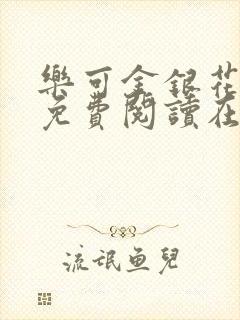 樂可金銀花
免費閱讀在
流氓魚兒